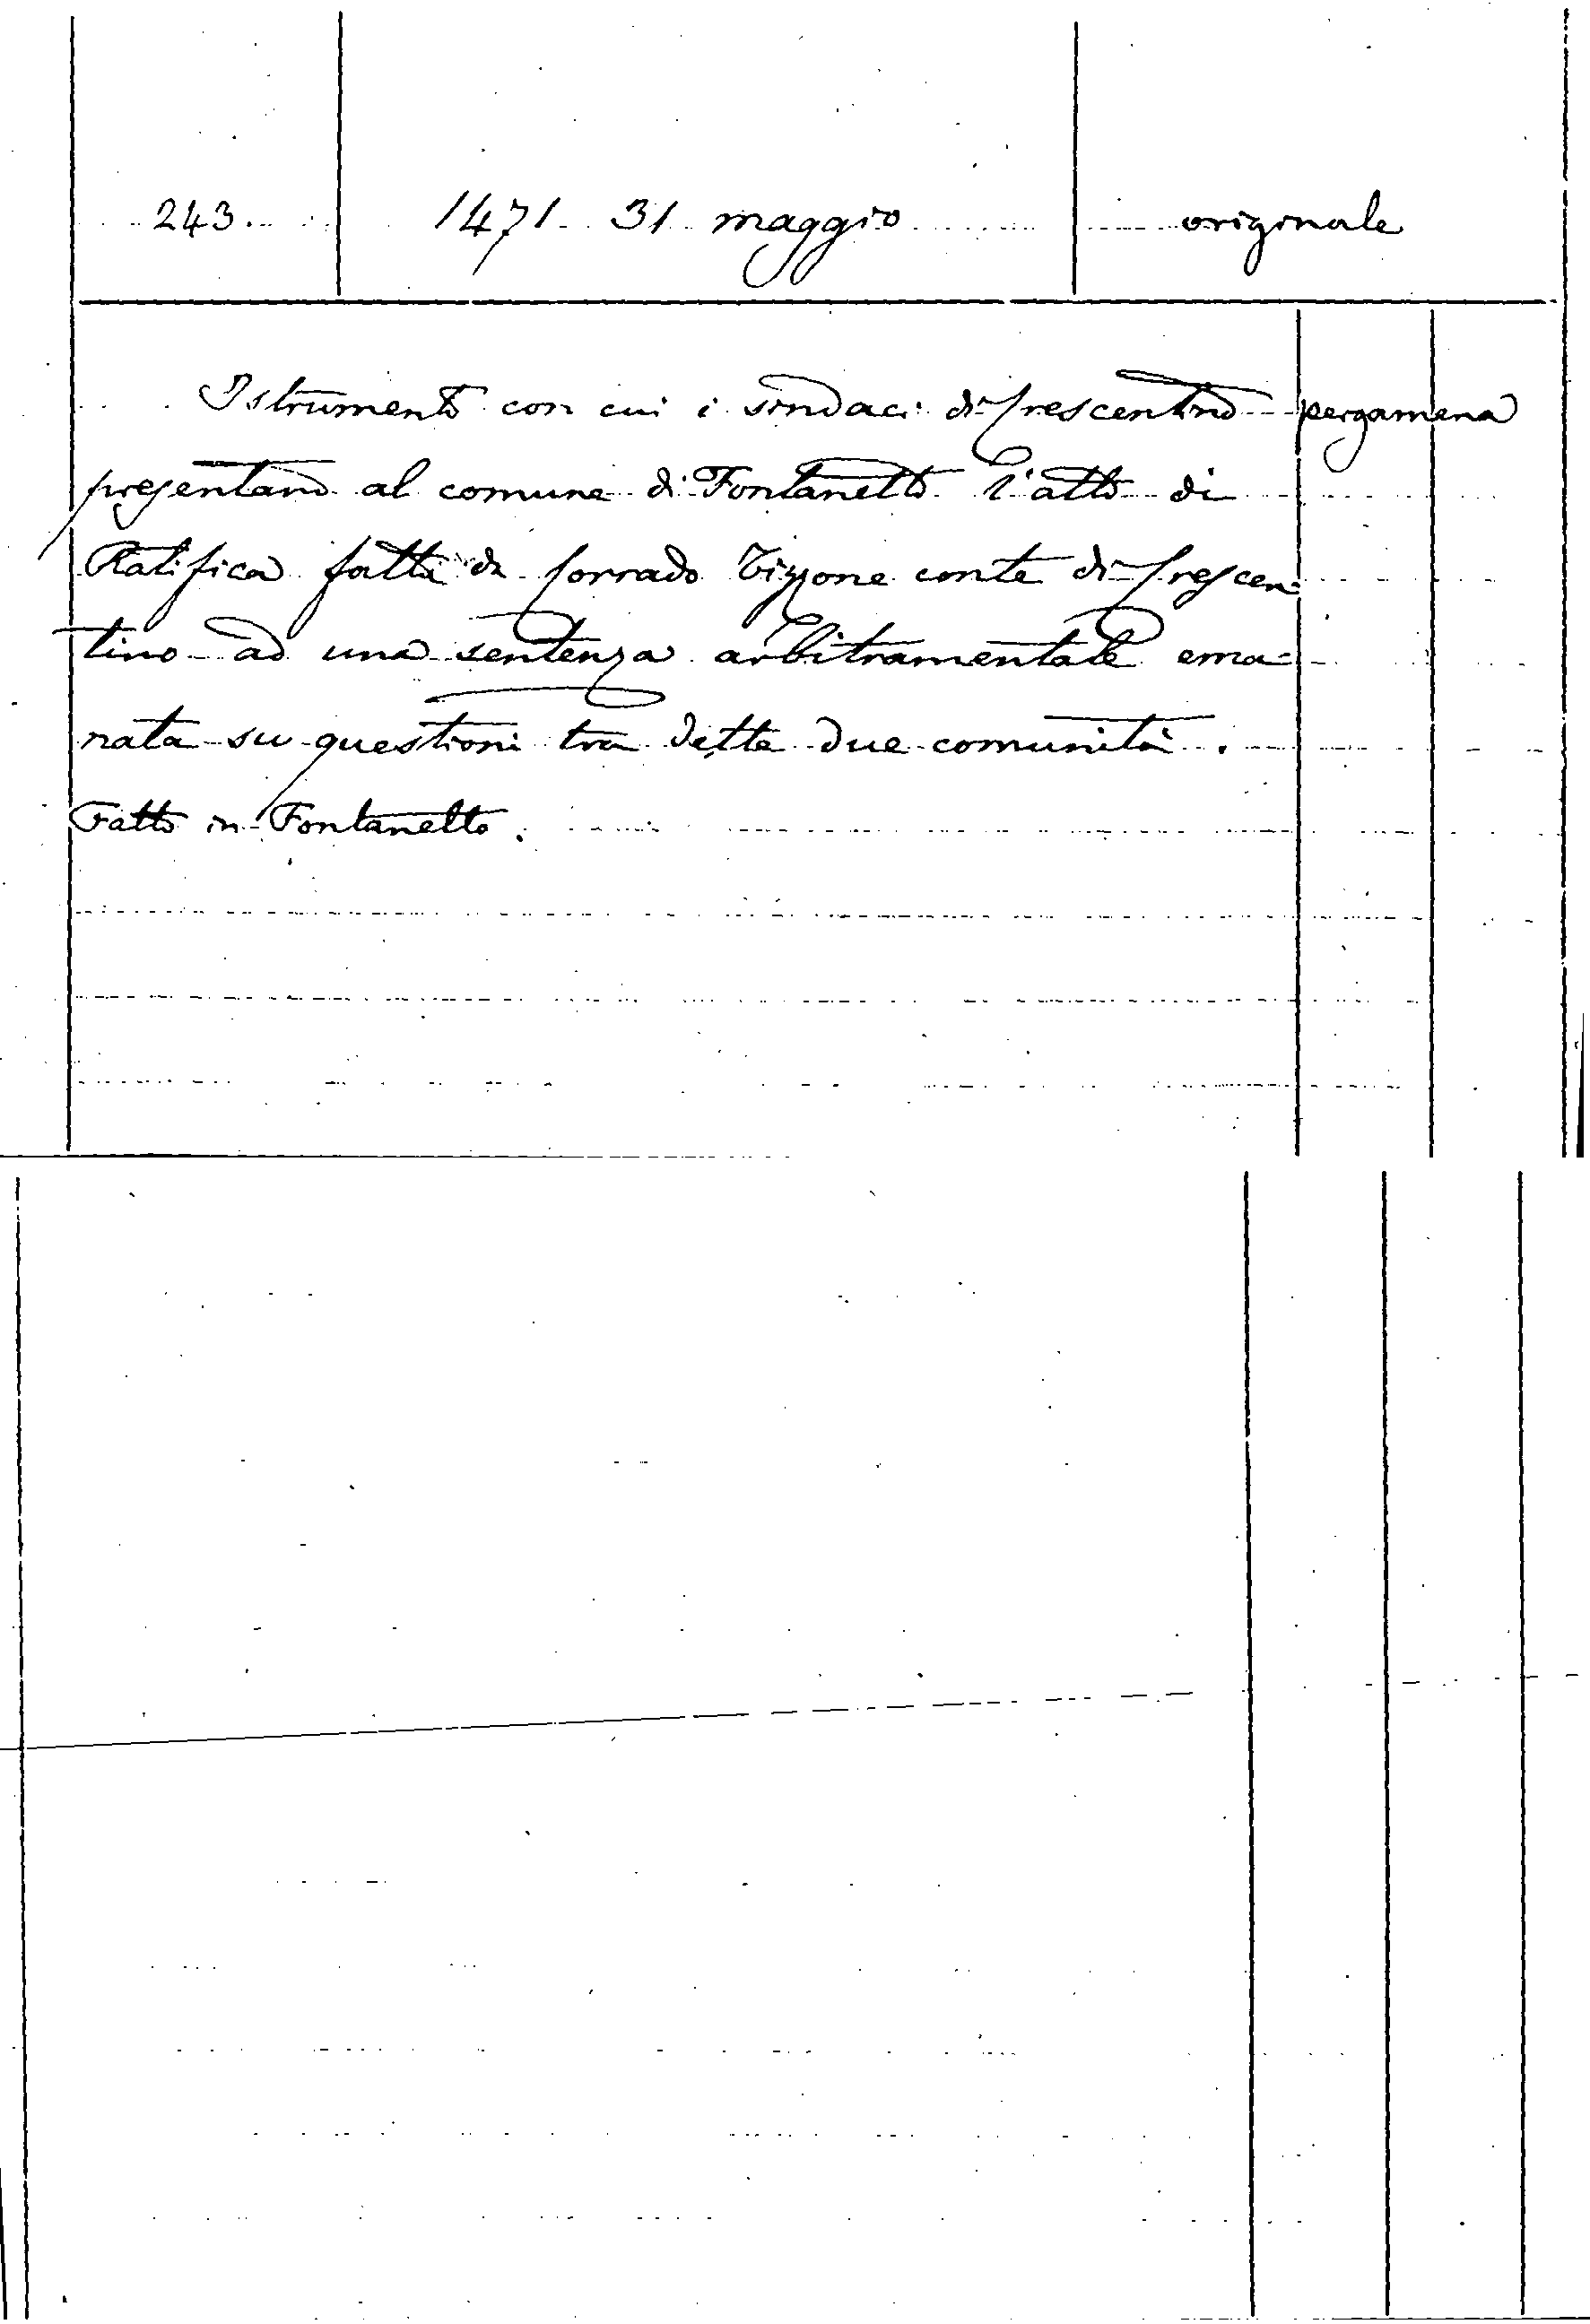 243. 1471 31 maggio originale
Istrumento con cui i sindaci di Crescentino pergamena
presentano al comune di Fontanetto l'atto di
Ratifica fatta da Corrado Tizzone conte di Crescen=
tino ad una sentenza arbitramentale ema=
nata su questioni tra dette due comunità.
Fatto in Fontanetto.